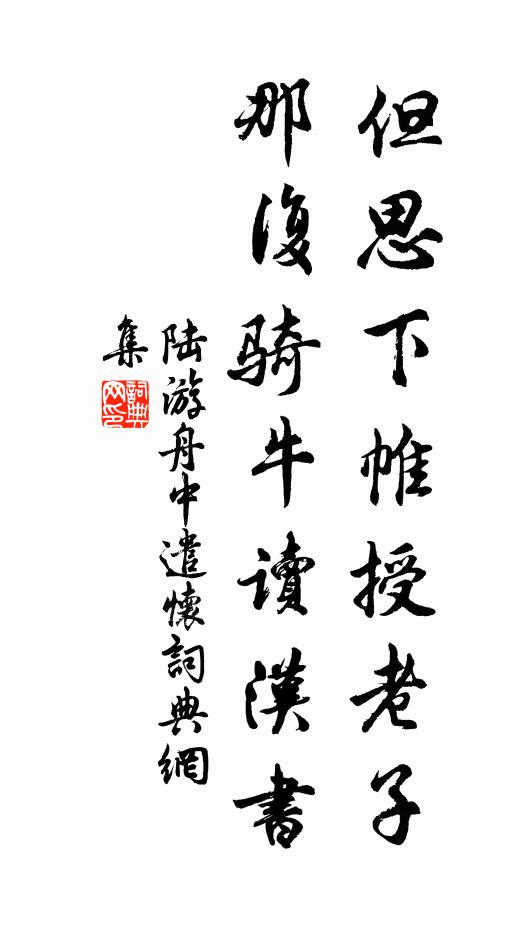 但思下帷授老子
那復騎牛讀漢書
陸游舟中遣懷詞典網
集
詞典网印